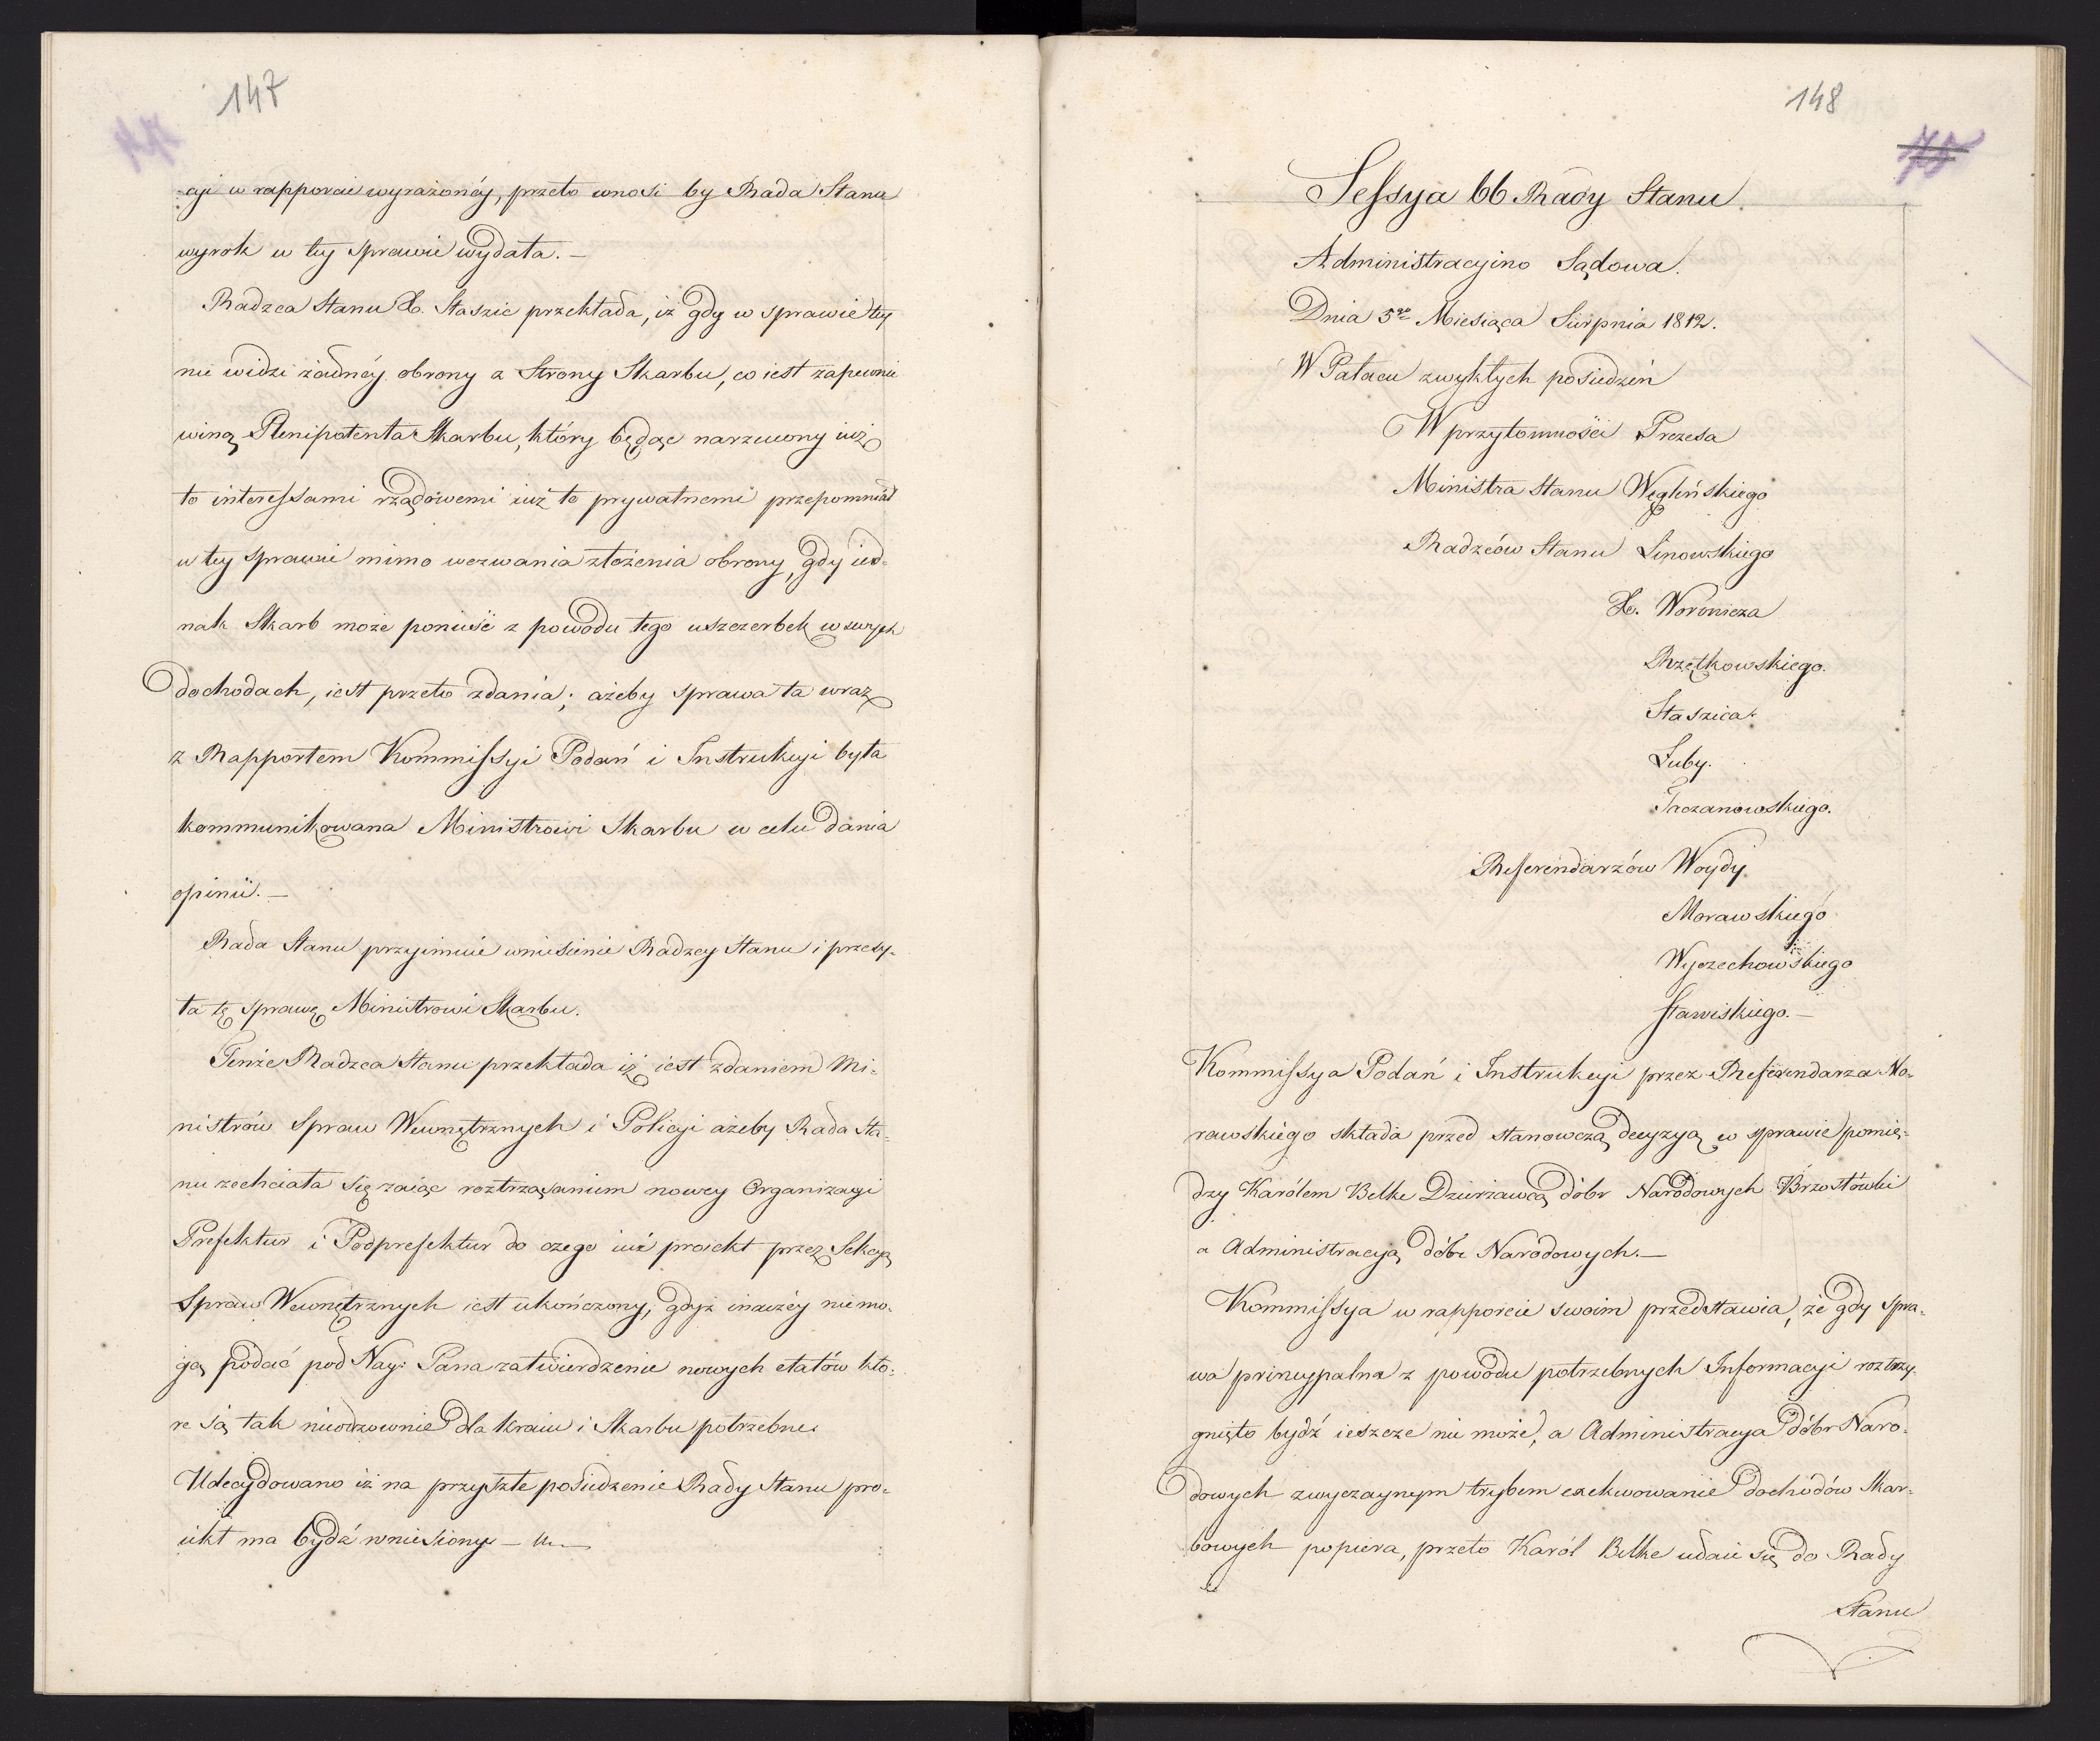 147
cji w rapporcie wyrażonéy, przeto wnosi by Rada Stanu
wyrok w tey sprawie wydała. —
Radzca Stanu X. Staszic przekłada, iż gdy w sprawie tey
nie widzi żadnéy obrony z Strony Skarbu, co iest zapewnie
winą Plenipotenta Skarbu, który będąc narzucony iuż
to interessami rządowemi iuż to prywatnemi przepomniał
w tey sprawie mimo wezwania złożenia obrony, gdy ied-
nak Skarb może ponieść z powodu tego uszczerbek w swych
dochodach, iest przeto zdania; ażeby sprawa ta wraz
z Rapportem Kommissyi Podań i Instrukcyi była
kommunikowana Ministrowi Skarbu w celu dania
opinii. —
Rada Stanu przyimuie wniesienie Radzcy Stanu i przesy-
ła tę sprawę Ministrowi Skarbu.
Tenże Radzca Stanu przekłada iż iest zdaniem Mi-
nistrów Spraw Wewnętrznych i Policyi ażeby Rada Sta-
nu zechciała się zaiąc roztrząsaniem nowey Organizacyi
Prefektur i Podprefektur do czego iuż proiekt przez Sekcyą
Spraw Wewnętrznych iest ukończony, gdyż inaczéy nie mo-
gą podać pod Nay: Pana zatwierdzenie nowych etatów kto-
re są tak nieodzownie dla kraiu i Skarbu potrzebne.
Udecydowano iż na przyszłe posiedzenie Rady Stanu pro-
iekt ma bydź wniesiony —
148
75
Sessya 66 Rady Stanu.
Administracyino Sądowa.
Dnia 5go Miesiąca Sierpnia 1812.
W Pałacu zwykłych posiedzeń
W przytomności Prezesa
Ministra Stanu Węgleńskiego
Radzców Stanu Linowskiego
X. Woronicza
Rzętkowskiego.
Staszica.
Łuby.
Taczanowskiego.
Referendarzów Woydy.
Morawskiego
Wyczechowskiego
Stawiskiego. —
Kommissya Podań i Instrukcyi przez Referendarza Mo-
rawskiego składa przed stanowczą decyzyą w sprawie pomię-
dzy Karólem Belke Dzierżawcą dóbr Narodowych Brzostówki
a Administracyą dóbr Narodowych. —
Kommissya w rapporcie swoim przedstawia, że gdy spra-
wa pryncypalna z powodu potrzebnych Informacyi roztrzy-
gnięto bydź ieszcze nie może, a Administracya dóbr Naro-
dowych zwyczaynym trybem exekwowanie dochodów Skar-
bowych popiera, przeto Karól Belke udaie się do Rady
Stanu